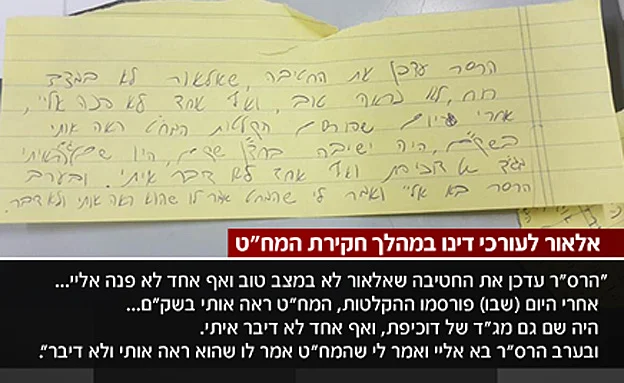 הרסר עדכן את החטיבה, שאלאור לא במצב
רוח, לא נראה טוב, ואף אחד לא פנה אליי,
אחרי יום שפורסמו הקלטות המחט ראה אותי
בשקם, היה ישיבה שקם, היו
מגד דוכיפת ואף אחד לא דבר איתי. ובערב
הרסר בא אליי ואמר לי שהמחט אמר לו שהוא ראה אותי ולא דבר.
אלאור לעורכי דינו במהלך חקירת המח"ט
"הרס"ר עדכן את החטיבה שאלאור לא במצב טוב ואף אחד לא פנה אליי...
אחרי היום (שבו) פורסמו ההקלטות, המח"ט ראה אותי בשק"ם...
היה שם גם מג"ד של דוכיפת, ואף אחד לא דיבר איתי.
ובערב הרס"ר בא אליי ואמר לי שהמח"ט אמר לו שהוא ראה אותי ולא דיבר".